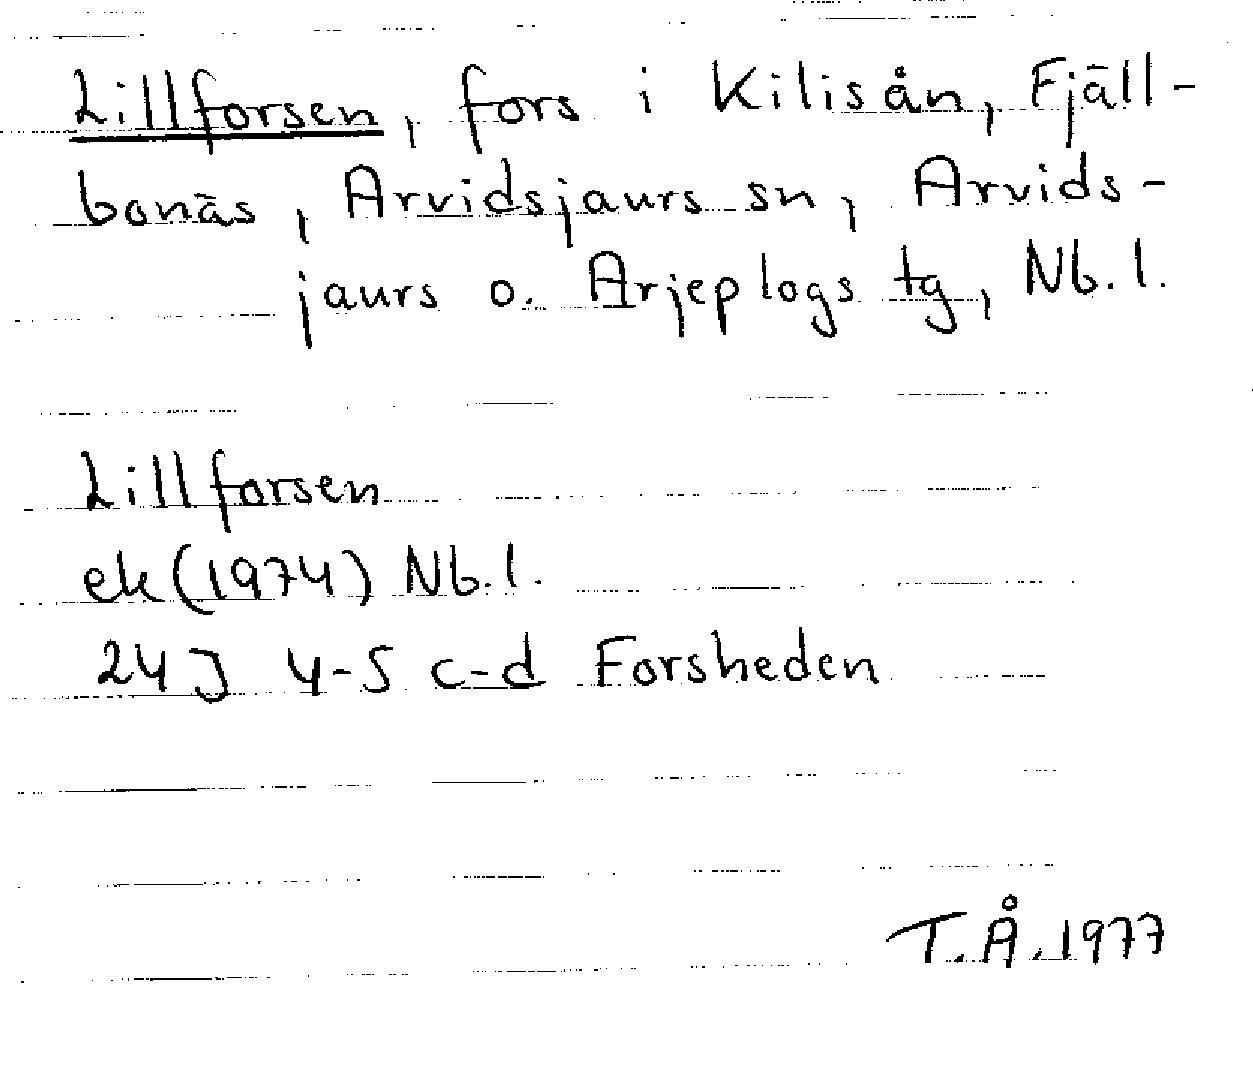 Lillforsen, fors i Kilisån, Fjäll-
bonäs, Arvidsjaurs sn, Arvids-
jaurs o. Arjeplogs tg, Nb.l.
Lillforsen
ek (1974) Nb.l.
24J 4-5 c-d Forsheden
T.Å.1977